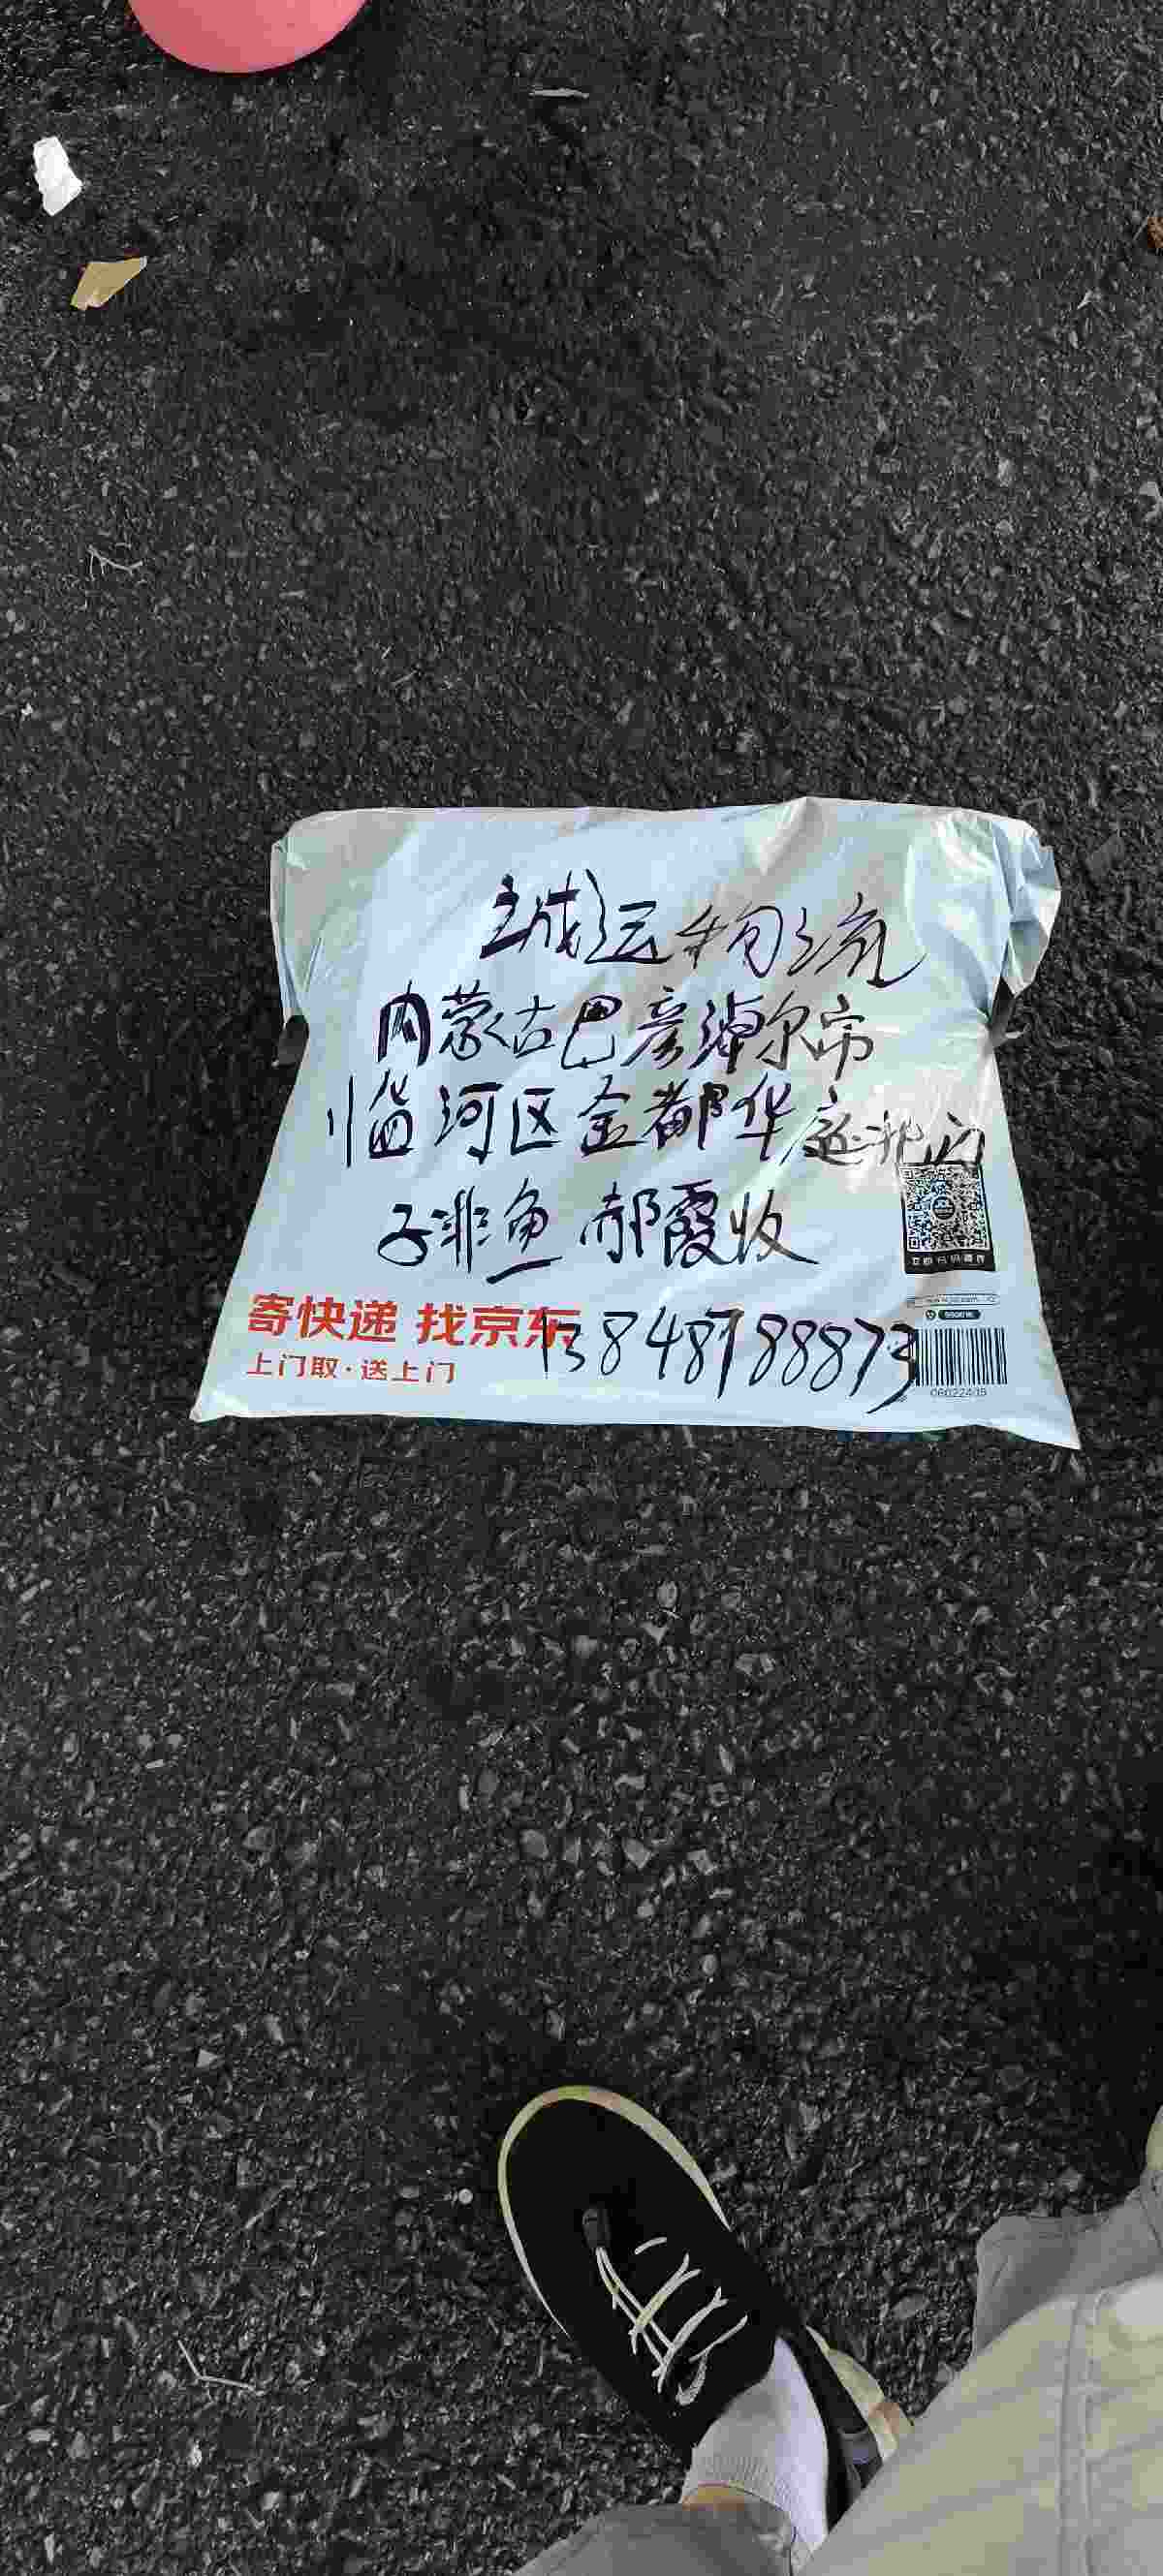 诚运物流
内蒙古巴彦淖尔市
临河区金都华庭北门
子非鱼 郝霞收
寄快递 找京东
13848788873
上门取·送上门